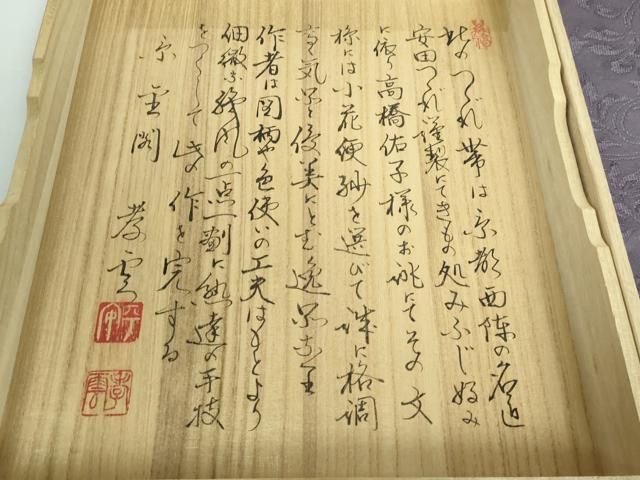 此のつづれ帯は京都西陣の名匠
安田つづれ謹製にてきもの処みふじ好み
に依り高橋佑子様のお誂にてその文
様には小花便紗を選びて誠に格調
高く気品と優美にとむ逸品なり
作者は図柄や色使いの工夫はもとより
細微な絵風の一点一劃に熟達の手技
をつくして此の作を完する
京金閣
孝雲